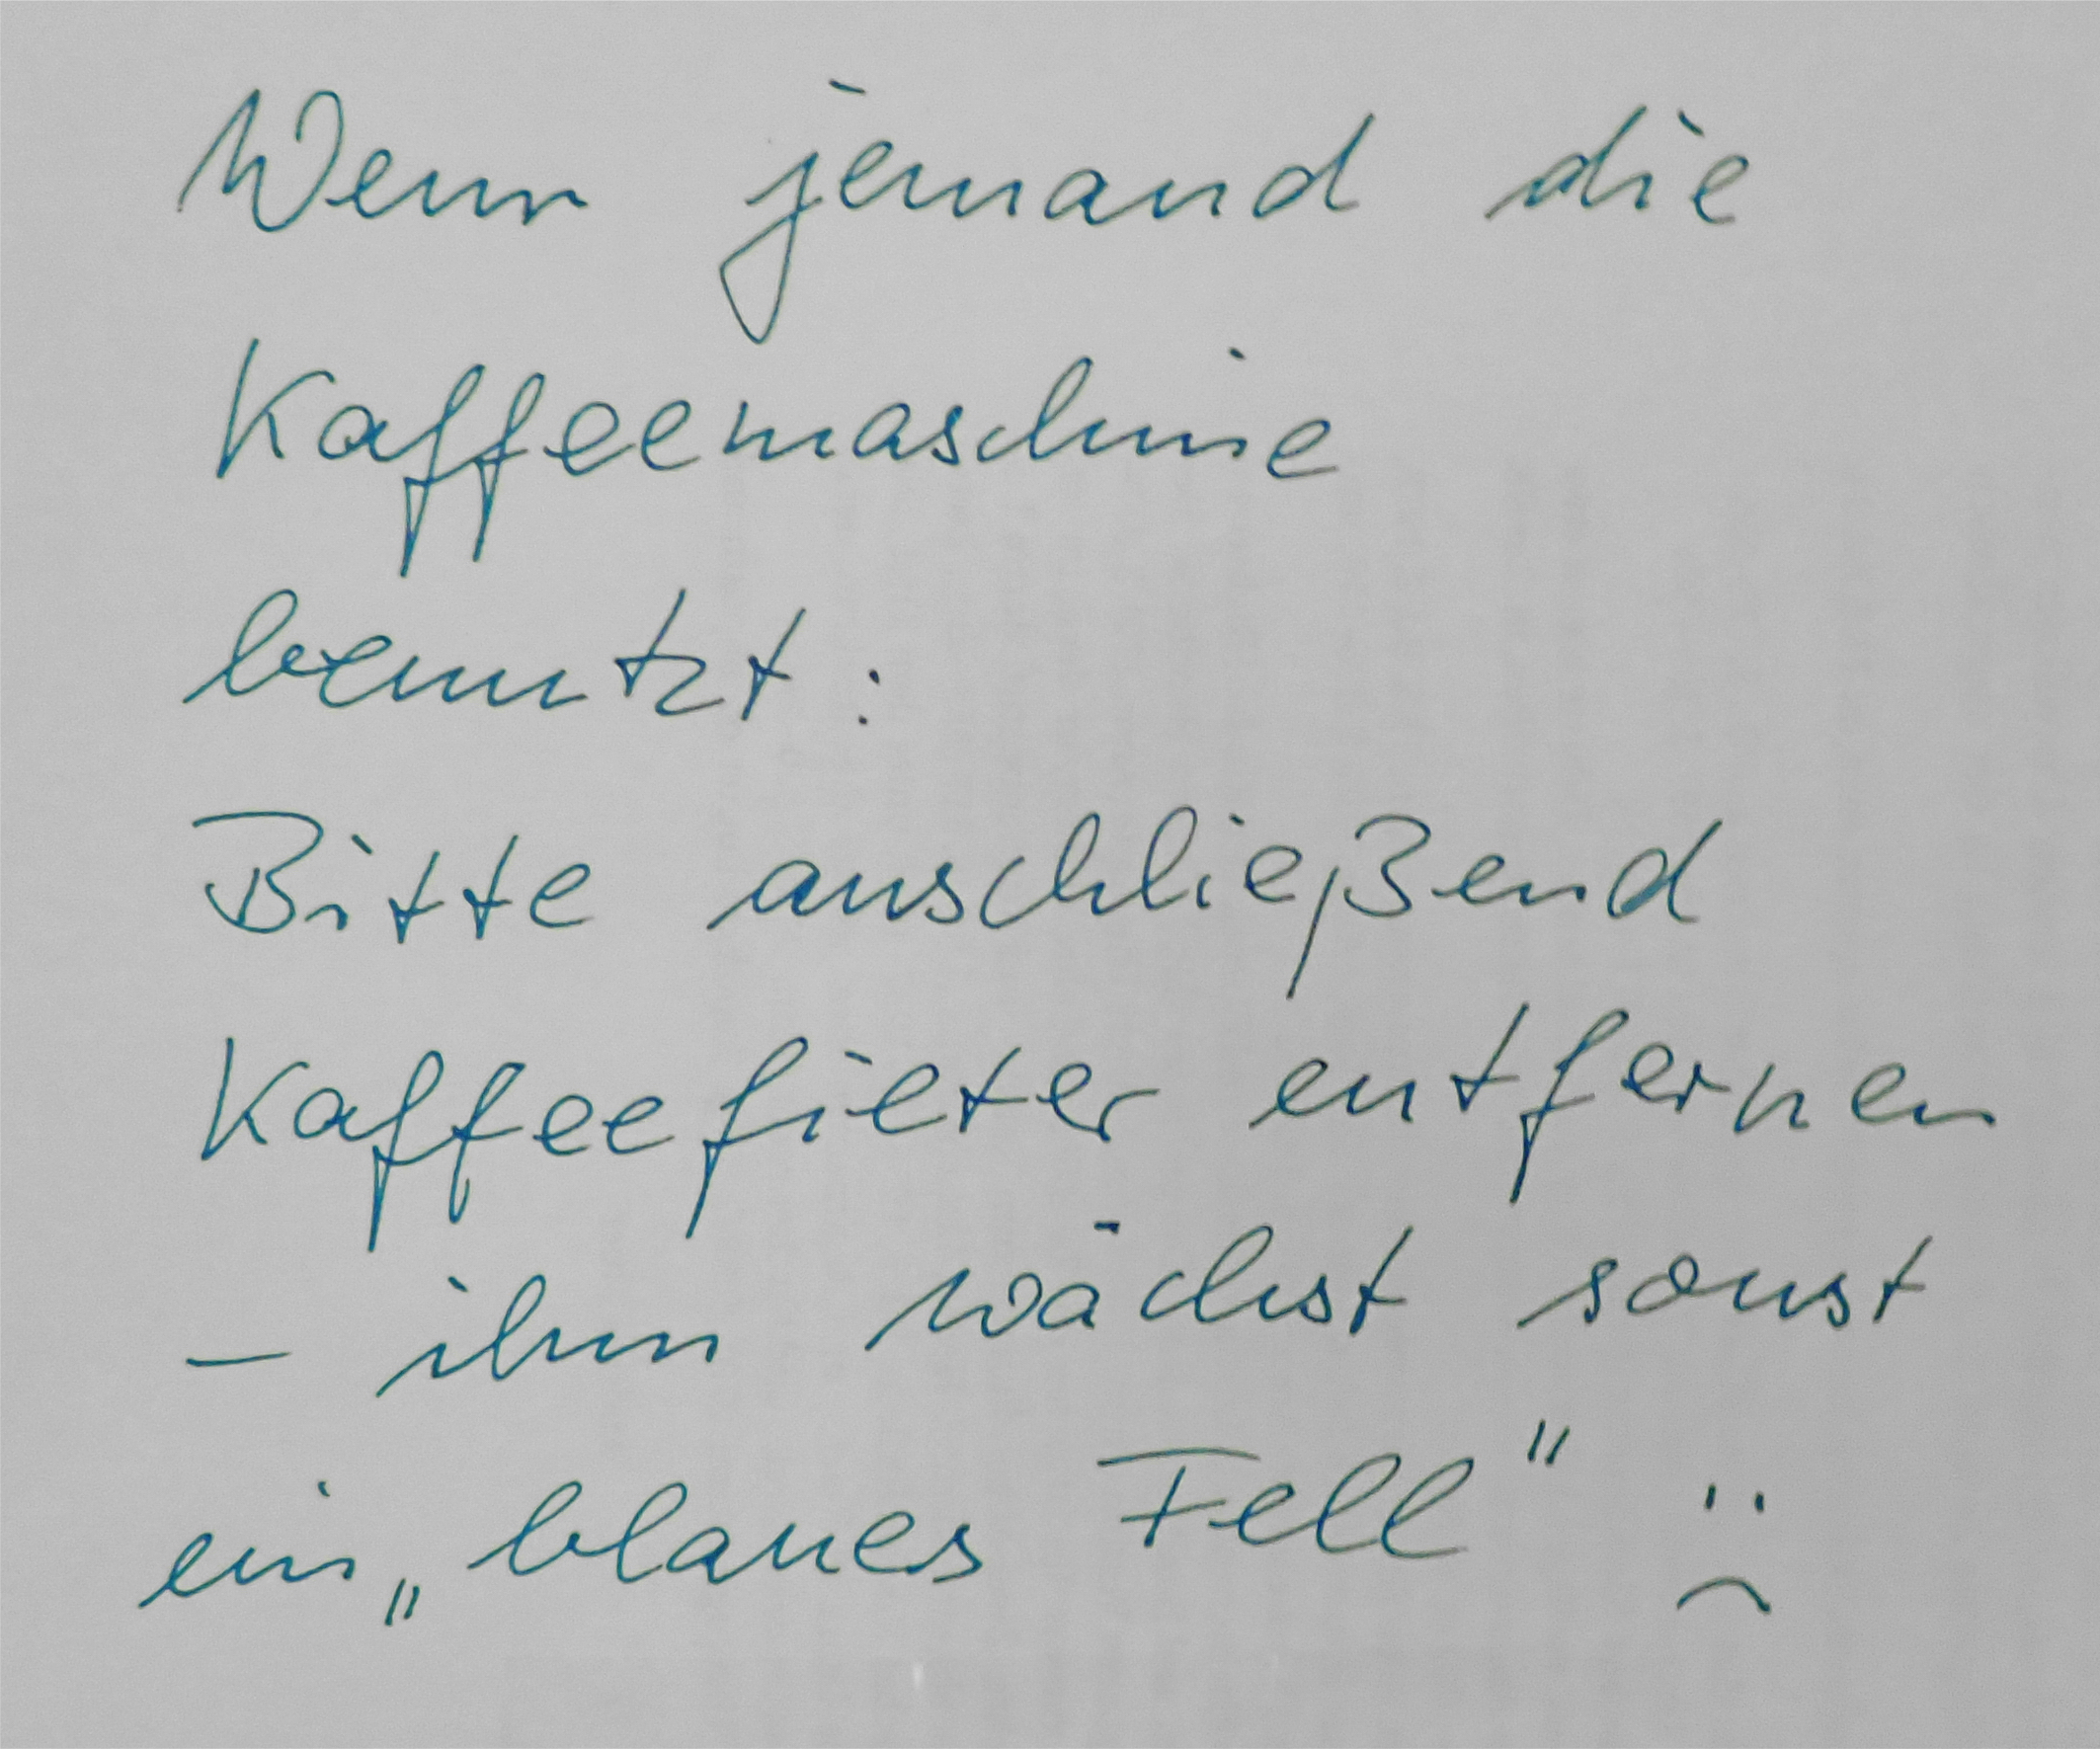 Wenn jemand die
Kaffeemaschine
benutzt:
Bitte anschließend
Kaffeefilter entfernen
– ihm wächst sonst
ein „blaues Fell" :(